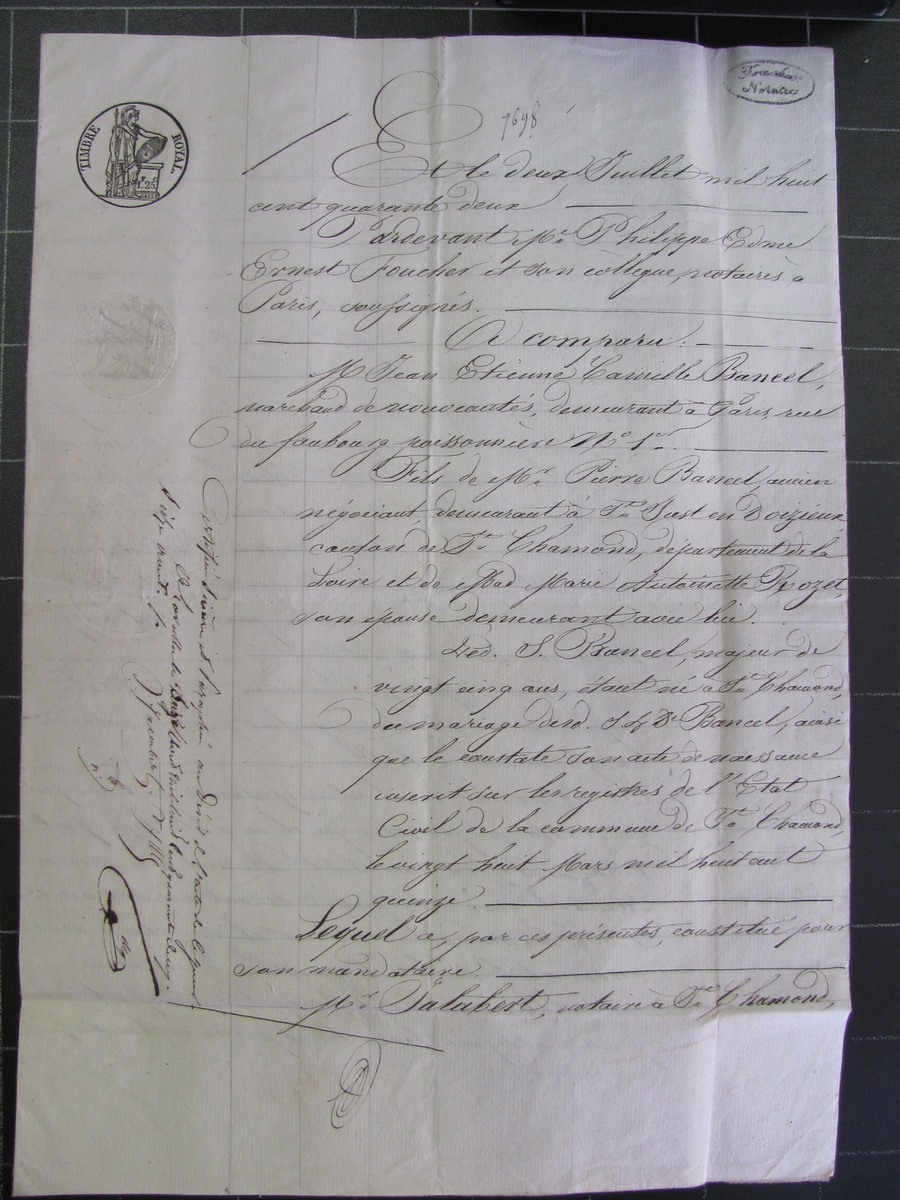 TIMBRE ROYAL
1.25
Foucher
Notaire
1698
Et le deux Juillet mil huit
cent quarante deux
Pardevant Me. Philippe Edme
Ernest Foucher et son collègue, notaires à
Paris, soussignés.
A comparu:
M Jean Etienne Camille Bancel,
marchand de nouveautés, demeurant à Paris, rue
du faubourg poissonnière No. 1er.
Fils de Mr. Pierre Bancel, ancien
négociant, demeurant à St. Just en Doizieux
canton de St. Chamond, département de la
Loire et de Mad Marie Antoinette Rozet,
son épouse demeurant avec lui.
Led. S. Bancel, majeur de
vingt cinq ans, étant né à St. Chamond,
du mariage desd. S. & De. Bancel, ainsi
que le constate son acte de naissance
inscrit sur les registres de l'Etat
Civil de la commune de St. Chamond,
le vingt huit Mars mil huit cent
quinze.
Lequel a, par ces présentes, constitué pour
son mandataire.
Mr. Jalabert, notaire à St. Chamond,
Certifié sincère et paraphé au désir de l'acte de